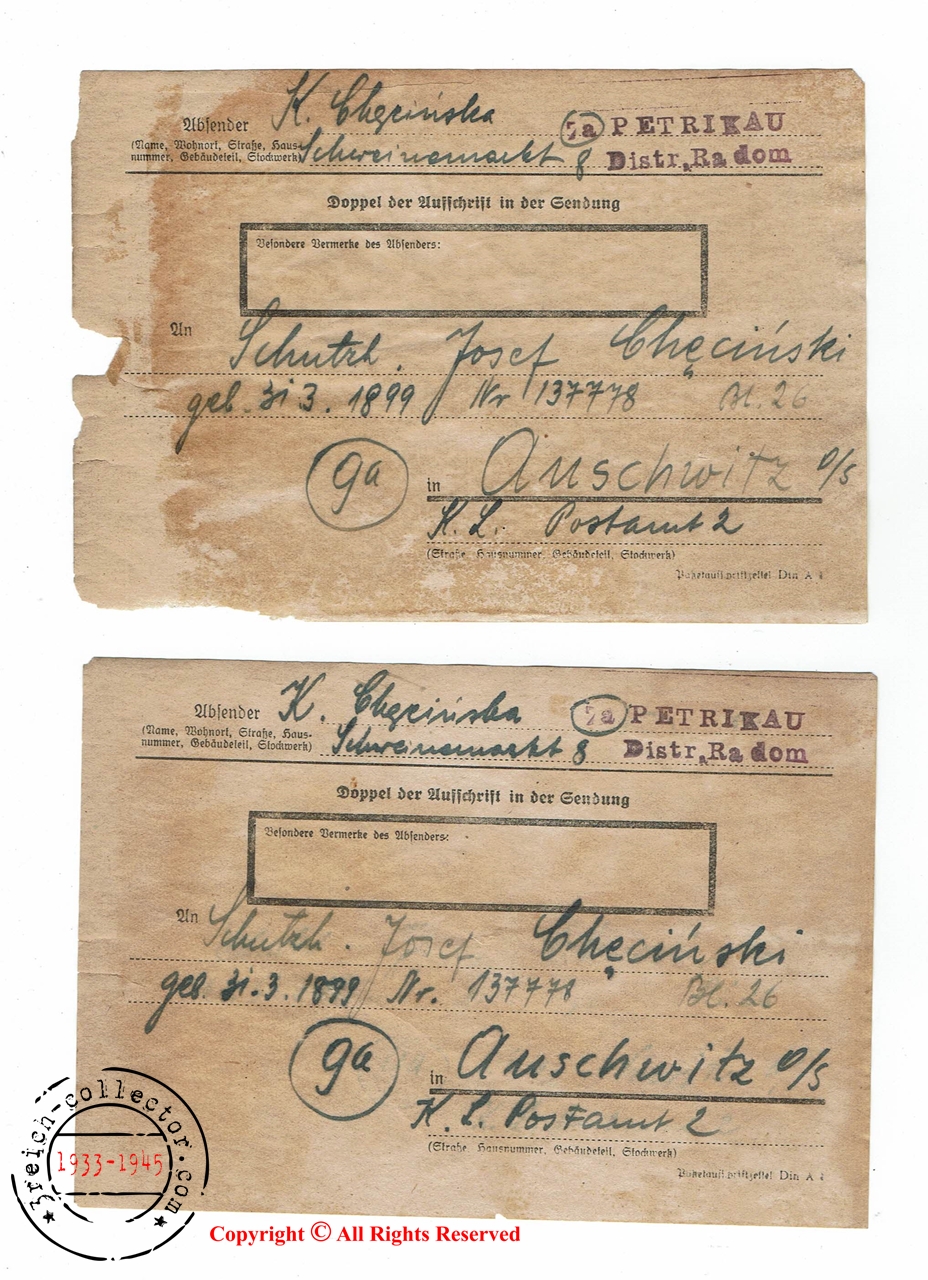 K. Chęcińska
Absender
(Name, Wohnort, Straße, Haus-
nummer, Gebäudeteil, Stockwerk)
Schweinemarkt 8
7a PETRIKAU
Distr. Radom
Doppel der Aufschrift in der Sendung
Besondere Vermerke des Absenders:
An Schutzh. Josef Chęciński
geb. 31 3. 1899 Nr 137778 Bl. 26
9a in Auschwitz O/S
K. L. Postamt 2
(Straße, Hausnummer, Gebäudeteil, Stockwerk)
Din A
K. Chęcińska
Absender
(Name, Wohnort, Straße, Haus-
nummer, Gebäudeteil, Stockwerk)
Schweinemarkt 8
7a PETRIKAU
Distr. Radom
Doppel der Aufschrift in der Sendung
Besondere Vermerke des Absenders:
An Schutzh. Josef Chęciński
geb. 31.3.1899 Nr. 137778 Bl. 26
9a in Auschwitz O/S
K. L. Postamt 2
(Straße, Hausnummer, Gebäudeteil, Stockwerk)
Din A
3reich-collector.com
1933-1945
Copyright © All Rights Reserved